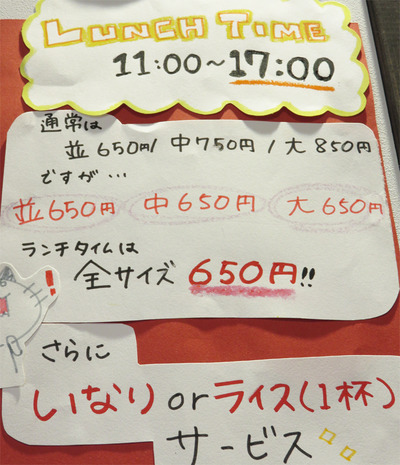 LUNCH TIME
11:00~17:00
通常は
並650円/ 中750円 / 大850円
ですが…
並650円 中650円 大650円
ランチタイムは
全サイズ 650円!!
!
さらに
いなり or ライス(1杯)
サービス